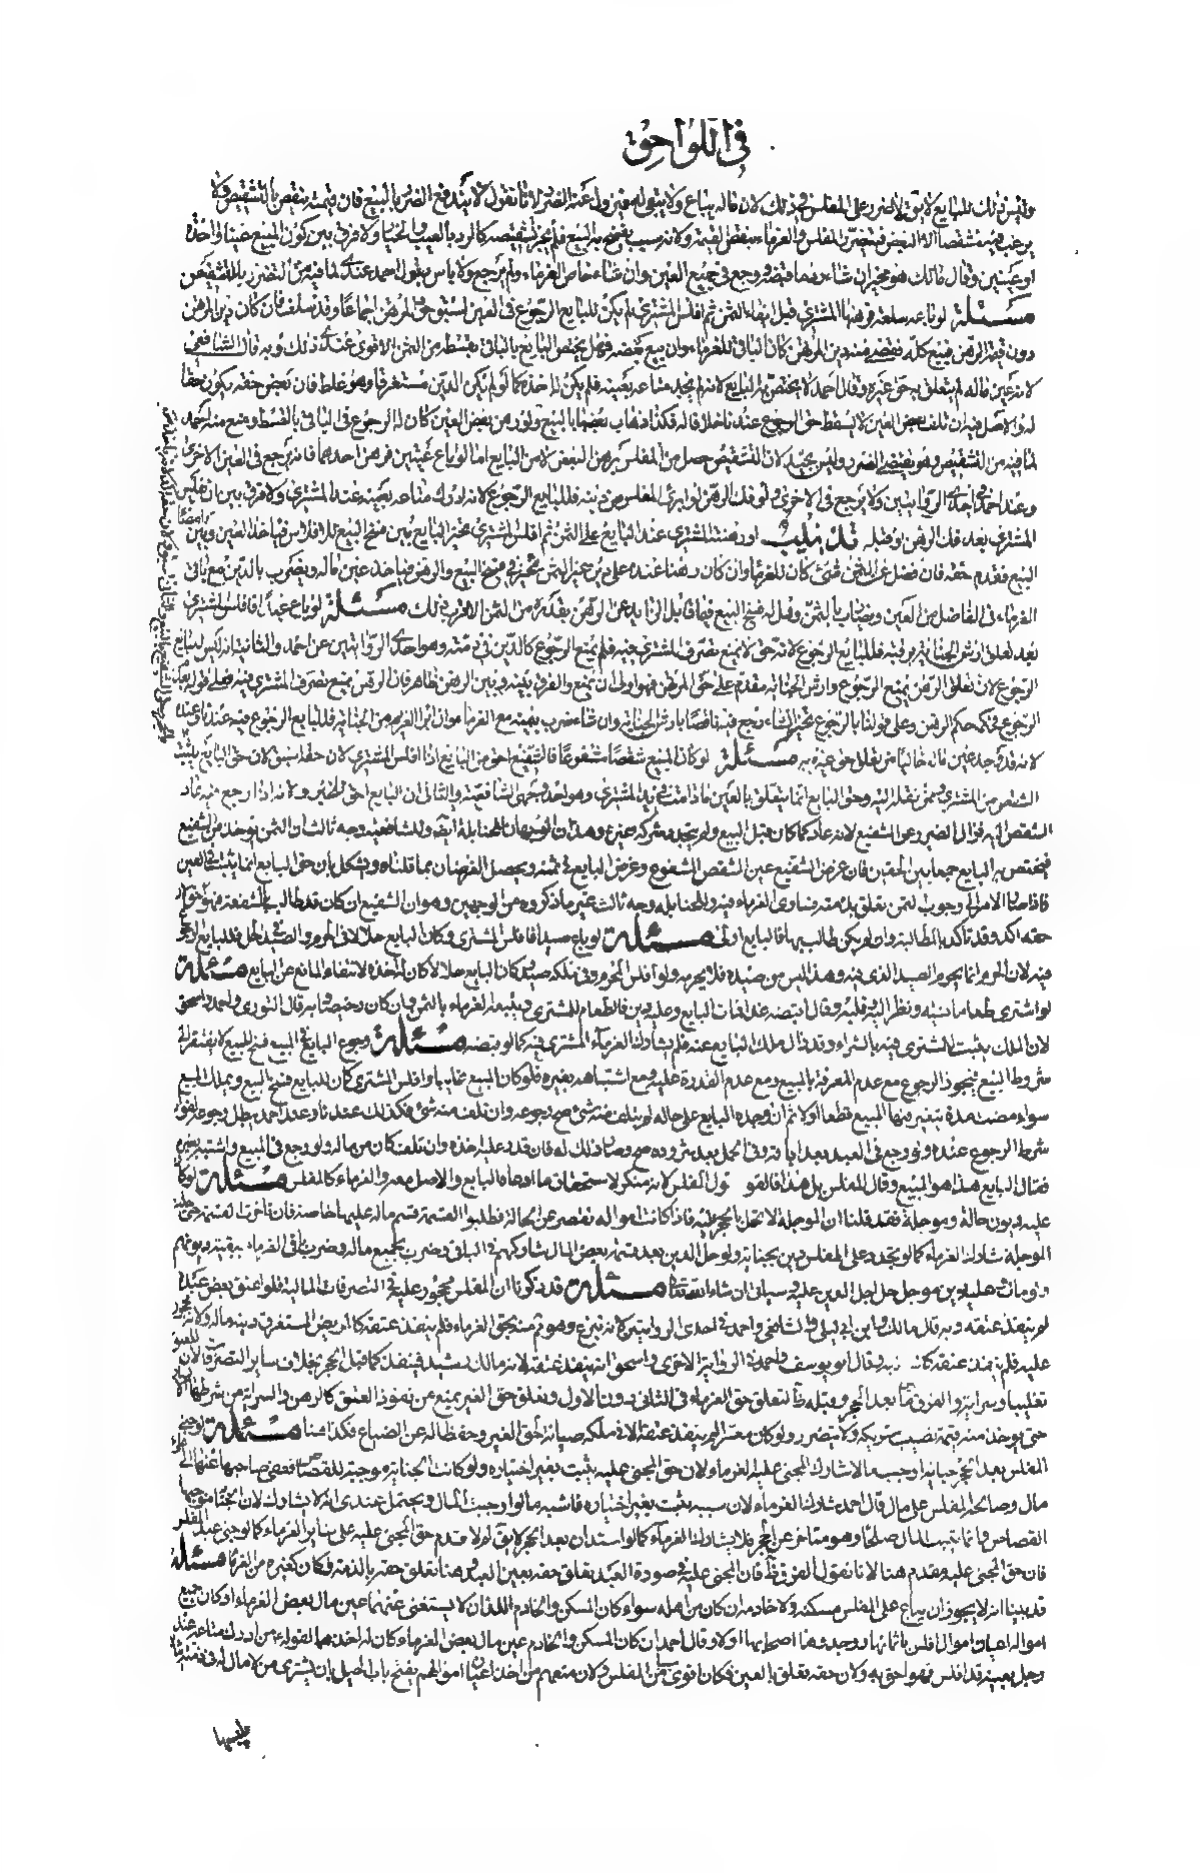 في اللواحق
وليس ذلك للبايع لانه لا ضرر على المفلس في ذلك لان ماله يباع ولا يبقى له فيزول عنه الضرر لانا نقول لا يندفع الضرر بالبيع فان قيمته ينقص بالتشقيص ولا
يرغب فيه مشقصا البعض فيتضرر المفلس والغرماء بنقص القيمة ولانه سبب يفسخ به البيع فلم يجز تشقيصه كالرد بالعيب والخيار ولا فرق بين كون المبيع عينا واحدة
او عينين وقال مالك هو مخير ان شاء رد ما قبضه ورجع في جميع العين وان شاء حاص الغرماء ولم يرجع ولا باس بقول احمد عندي لما فيه من التضرر بالتشقيص
مسئلة لو باعه سلعة فرهنها المشتري قبل ايفاء الثمن ثم افلس المشتري لم يكن للبايع الرجوع في العين لسبق حق المرتهن اجماعا وقد سلف فان كان دين المرتهن
دون قيمة الرهن فبيع كله فقضي منه دين المرتهن كان الباقي للغرماء وان بيع بعضه فهل يختص البايع بالباقي بقسطه من الثمن الاقوى عندي ذلك وبه قال الشافعي
لانه عين ماله لم يتعلق به حق غيره وقال احمد لا يختص به البايع لانه لم يجد متاعه بعينه فلم يكن له اخذه كما لو لم يكن الدين مستغرقا وهو غلط فان بعض حقه يكون حقا
له والاصل فيه ان تلف بعض العين لا يسقط حق الرجوع عندنا خلافا له فكذا ذهاب بعضها بالبيع ولو رهن بعض العين كان له الرجوع في الباقي بالقسط ومنع منه احمد
لما فيه من التشقيص وهو يقتضي الضرر وليس بجيد لان التشقيص حصل من المفلس برهن البعض لا من البايع اما لو باع عينين فرهن احدهما فانه يرجع في العين الاخرى
وعند احمد احدى الروايتين ولا يرجع في الاخرى ولو فك الرهن او ابرئ المفلس من دينه فللبايع الرجوع لانه ادرك متاعه بعينه عند المشتري ولا فرق بين ان يفلس
المشتري بعد فك الرهن او قبله تذنيب لو رهنه المشتري عند البايع على الثمن ثم افلس المشتري تخير البايع بين فسخ البيع للافلاس فياخذ العين وبين
البيع فيقدم حقه فان فضل عن الثمن شئ كان للغرماء وان كان رهنا عنده على دين غير الثمن تخير في فسخ البيع والرهن فياخذ عين ماله ويضرب بالدين مع باقي
الغرماء في الفاضل من العين ويضارب بالثمن وهل له فسخ البيع فيما قابل الزايد عن الرهن بقدره من الثمن الاقرب ذلك مسئلة لو باع عبدا فافلس المشتري
بعد تعلق ارش الجناية برقبته فللبايع الرجوع لانه حق لا يمنع تصرف المشتري فيه فلم يمنع الرجوع كالدين في ذمته وهو احدى الروايتين عن احمد والثانية انه ليس للبايع
الرجوع لان تعلق الرهن يمنع الرجوع وارش الجناية مقدم على حق المرتهن فهو اولى ان يمنع والفرق بينه وبين الرهن ظاهر فان الرهن يمنع تصرف المشتري فيه فعلى قوله بعدم
الرجوع فحكمه حكم الرهن وعلى قولنا بالرجوع تخير ان شاء رجع فيه ناقصا بارش الجناية وان شاء ضرب بثمنه مع الغرماء وان ابرأ الغريم من الجناية فللبايع الرجوع فيه عندنا وعنده
لانه قد وجد عين ماله خاليا من تعلق حق غيره به مسئلة لو كان المبيع شقصا مشفوعا فالشفيع احق من البايع اذا افلس المشتري لان حقه اسبق لان حق البايع يثبت
الشقص من المشتري وبمن نقله اليه وحق البايع انما يتعلق بالعين ما دامت في يد المشتري وهو احد وجهي الشافعية والثاني ان البايع احق للخبر ولانه اذا رجع فيه عاد
الشقص اليه فزال الضرر عن الشفيع لانه عاد كما كان قبل البيع ولم يتجدد شركة غيره وهذان الوجهان للحنابلة ايضا وللشافعية وجه ثالث ان الثمن يؤخذ من الشفيع
فيختص به البايع جمعا بين الحقين فان غرض الشفيع عين الشقص المشفوع وغرض البايع في ثمنه ويحصل الغرضان بما قلناه ويشكل بان حق البايع انما يثبت في العين
فاذا صار الامر الى وجوب الثمن تعلق بذمته فساوى الغرماء فيه وللحنابلة وجه ثالث غير ما ذكروه من الوجهين وهو ان الشفيع ان كان قد طالب بالشفعة فهو احق لان
حقه اكد وقد تاكد بالمطالبة وان لم يكن طالب بها فالبايع اولى مسئلة لو باع صيدا فافلس المشتري وكان البايع حلالا في الحرم والصيد في الحل فللبايع الرجوع
فيه لان الحرم انما يحرم الصيد الذي فيه وهذا ليس من صيده فلا يحرمه ولو افلس المحرم وفي ملكه صيد وكان البايع حلالا كان له اخذه لانتفاء المانع عن البايع مسئلة
لو اشترى طعاما نسية ونظر اليه وقلبه وقال اقبضه غدا فمات البايع وعليه دين فالطعام للمشتري ويتبعه الغرماء بالثمن وان كان رخيصا وبه قال الثوري واحمد واسحق
لان الملك يثبت للمشتري فيه بالشراء وقد زال ملك البايع عنه فلم يشارك الغرماء المشتري فيه كما لو قبضه مسئلة رجوع البايع في المبيع فسخ للبيع لا يفتقر الى
شروط البيع فيجوز الرجوع مع عدم المعرفة بالمبيع ومع عدم القدرة عليه ومع اشتباهه بغيره فلو كان المبيع غايبا وافلس المشتري كان للبايع فسخ البيع ويملك المبيع
سواء مضت مدة يتغير فيها المبيع قطعا او لا ثم ان وجده البايع على حاله لم يتلف منه شئ صح رجوعه وان تلف منه شئ فكذلك عندنا وعند احمد بطل رجوعه لفوات
شرط الرجوع عنده ولو رجع في العبد بعد اباقه وفي الجمل بعد شروده صح وصار ذلك له فان قدر عليه اخذه وان تلف كان من ماله ولو رجع في المبيع واشتبه بغيره
فقال البايع هذا هو المبيع وقال المفلس بل هذا فالقول قول المفلس لانه منكر لاستحقاق ما ادعاه البايع والاصل معه والغرماء كالمفلس مسئلة لو كان
عليه ديون حالة وموجلة فقد قلنا ان الموجلة لا تحل بالحجر عليه فاذا كانت امواله تقصر عن الحالة فطلبوا القسمة قسم ماله عليها خاصة فان تاخرت القسمة حتى حلت
الموجلة شارك الغرماء كما لو تجدد على المفلس دين بجناية ولو حل الدين بعد قسمة بعض المال شاركهم في الباقي وضرب بجميع ماله وضرب باقي الغرماء ببقية ديونهم
ولو مات وعليه دين موجل حل اجل الدين عليه وسياتي ان شاء الله تعالى مسئلة قد ذكرنا ان المفلس محجور عليه في التصرفات المالية فلو اعتق بعض عبيده
لم ينفذ عتقه وبه قال مالك وابن ابي ليلى والشافعي واحمد في احدى الروايتين لانه تبرع وهو ممنوع منه بحق الغرماء فلم ينفذ عتقه كالمريض المستغرق دينه ماله ولانه محجور
عليه فلم ينفذ عتقه كالسفيه وقال ابو يوسف واحمد في الرواية الاخرى واسحق انه ينفذ عتقه لانه مالك رشيد فينفذ كما قبل الحجر بخلاف ساير التصرفات لان للعتق
تغليبا وسراية والفرق ما بعد الحجر وقبله ظاهر لتعلق حق الغرماء في الثاني دون الاول وتعلق حق الغير يمنع من نفوذ العتق كالرهن والسراية من شرطها الايسار
حتى يوخذ منه قيمة نصيب شريكه ولا يتضرر ولو كان معسرا لم ينفذ عتقه الا في ملكه صيانة لحق الغير وحفظا له عن الضياع فكذا هنا مسئلة لو جنى
المفلس بعد الحجر جناية اوجبت مالا شارك المجني عليه الغرماء لان حق المجني عليه يثبت بغير اختياره ولو كانت الجناية موجبة للقصاص فعفى صاحبها عنها الى
مال وصالحه المفلس على مال قال احمد شارك الغرماء لان سببه يثبت بغير اختياره فاشبه ما لو اوجبت المال ويحتمل عندي انه لا يشارك لان الجناية موجبها
القصاص وانما يثبت المال صلحا وهو متاخر عن الحجر فلا يشارك الغرماء كما لو استدان بعد الحجر لا يقال لم لا قدم حق المجني عليه على ساير الغرماء كما لو جنى عبد المفلس
فان حق المجني عليه مقدم هنا لانا نقول الفرق ظاهر فان المجني عليه في صورة العبد تعلق حقه بعين العبد وهنا تعلق حقه بالذمة فكان كغيره من الغرماء مسئلة
قد بينا انه لا يجوز ان يباع على المفلس مسكنه ولا خادمه ان كان من اهله سواء كان المسكن والخادم اللذان لا يستغني عنهما عين مال بعض الغرماء او كان جميع
امواله اعيان اموال افلس باثمانها ووجدها اصحابها او لا وقال احمد ان كان المسكن والخادم عين مال بعض الغرماء كان له اخذهما لقوله ع من ادرك متاعه عند
رجل بعينه قد افلس فهو احق به ولان حقه تعلق بالعين فكان اقوى سببا من المفلس ولان منعهم من اخذ اعيان اموالهم يفتح باب الحيل بان يشتري من لا مال له في ذمته ثيابا
يلبسها